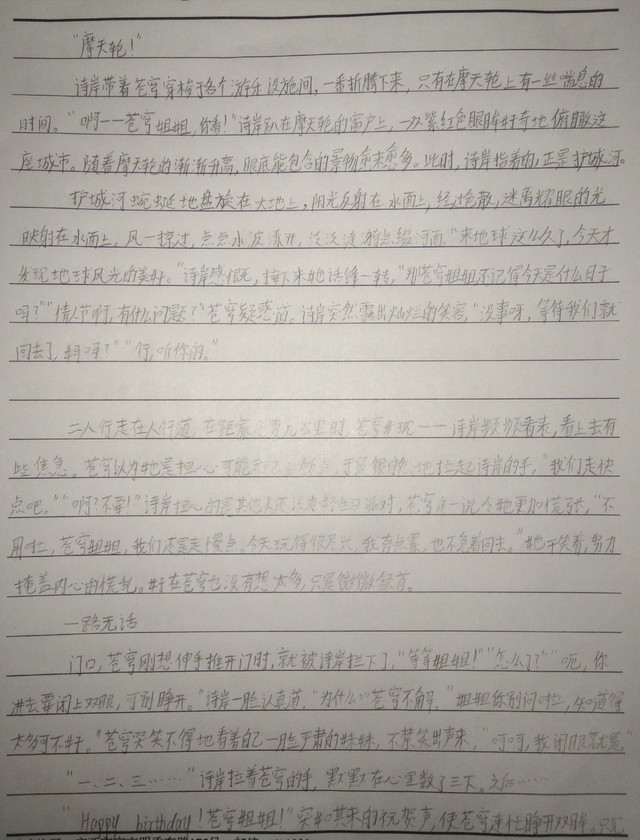 “摩天轮！”
诗岸带着苍穹穿梭于各个游乐设施间，一番折腾下来，只有在摩天轮上有一丝喘息的
时间。“啊——苍穹姐姐，你看！”诗岸趴在摩天轮的窗户上，一双紫红色眼眸好奇地俯瞰这
座城市。随着摩天轮的渐渐升高，眼底能包含的景物愈来愈多。此时，诗岸指着的，正是护城河。
护城河蜿蜒地盘旋在大地上，阳光反射在水面上，经过色散，迷离耀眼的光
映射在水面上。风一掠过，点点水波漾开，泛泛涟漪点缀河面。“来地球这么久了，今天才
发现地球风光的美好。”诗岸感慨，接下来她话锋一转，“那苍穹姐姐不记得今天是什么日子
吗？”“情人节啊，有什么问题？”苍穹疑惑道。诗岸突然露出灿烂的笑容，“没事呀，等待我们就
回去了，好吗？”“行，听你的。”
二人行走在人行道，在距家 几公里时，苍穹发现——诗岸频频看表，看上去有
些焦急。苍穹以为她是担心可能 于是很自然地拉起诗岸的手，“我们走快
点吧。”“啊？不要！”诗岸担心的是其他人还没有 生日派对，苍穹这一说令她更加慌张，“不
用啦，苍穹姐姐，我们还是走慢点。今天玩得很尽兴，我有点累，也不急着回去。”她干笑着，努力
掩盖内心的慌乱。好在苍穹也没有想太多，只是微微颔首。
一路无话
门口，苍穹刚想伸手推开门时，就被诗岸拦下了，“等等姐姐！”“怎么了？”“呃，你
进去要闭上双眼，可别睁开。”诗岸一脸认真道。“为什么？”苍穹不解。“姐姐你别问啦，知道得
太多可不好。”苍穹哭笑不得地看着自己一脸严肃的妹妹，不禁笑出声来，“呵呵，我闭眼就是”
“一、二、三……”诗岸拉着苍穹的手，默默在心里数了三下。之后……
“Happy birthday！苍穹姐姐！”突如其来的祝贺声，使苍穹连忙睁开双眸。只见